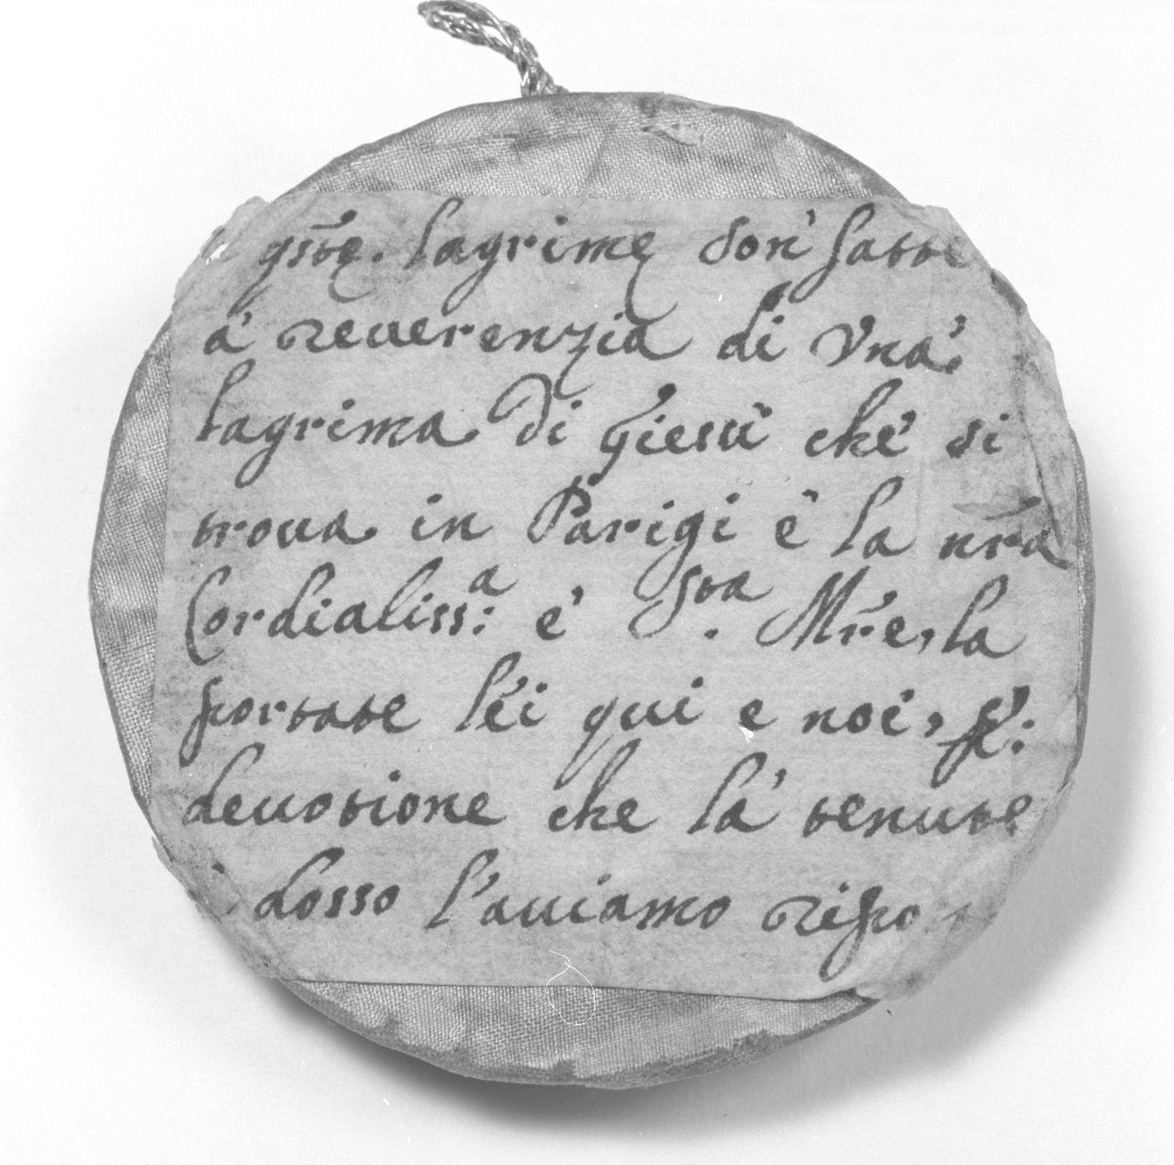 qste. lagrime son' fatte
à reuerenzia di Vna'
lagrima di Giesù che' si
troua in Parigi è la nra
Cordialiss:a e' Sta. Mre, la
portate lei qui e noi, p:
deuotione che la' tenute
i dosso l'auiamo ripo